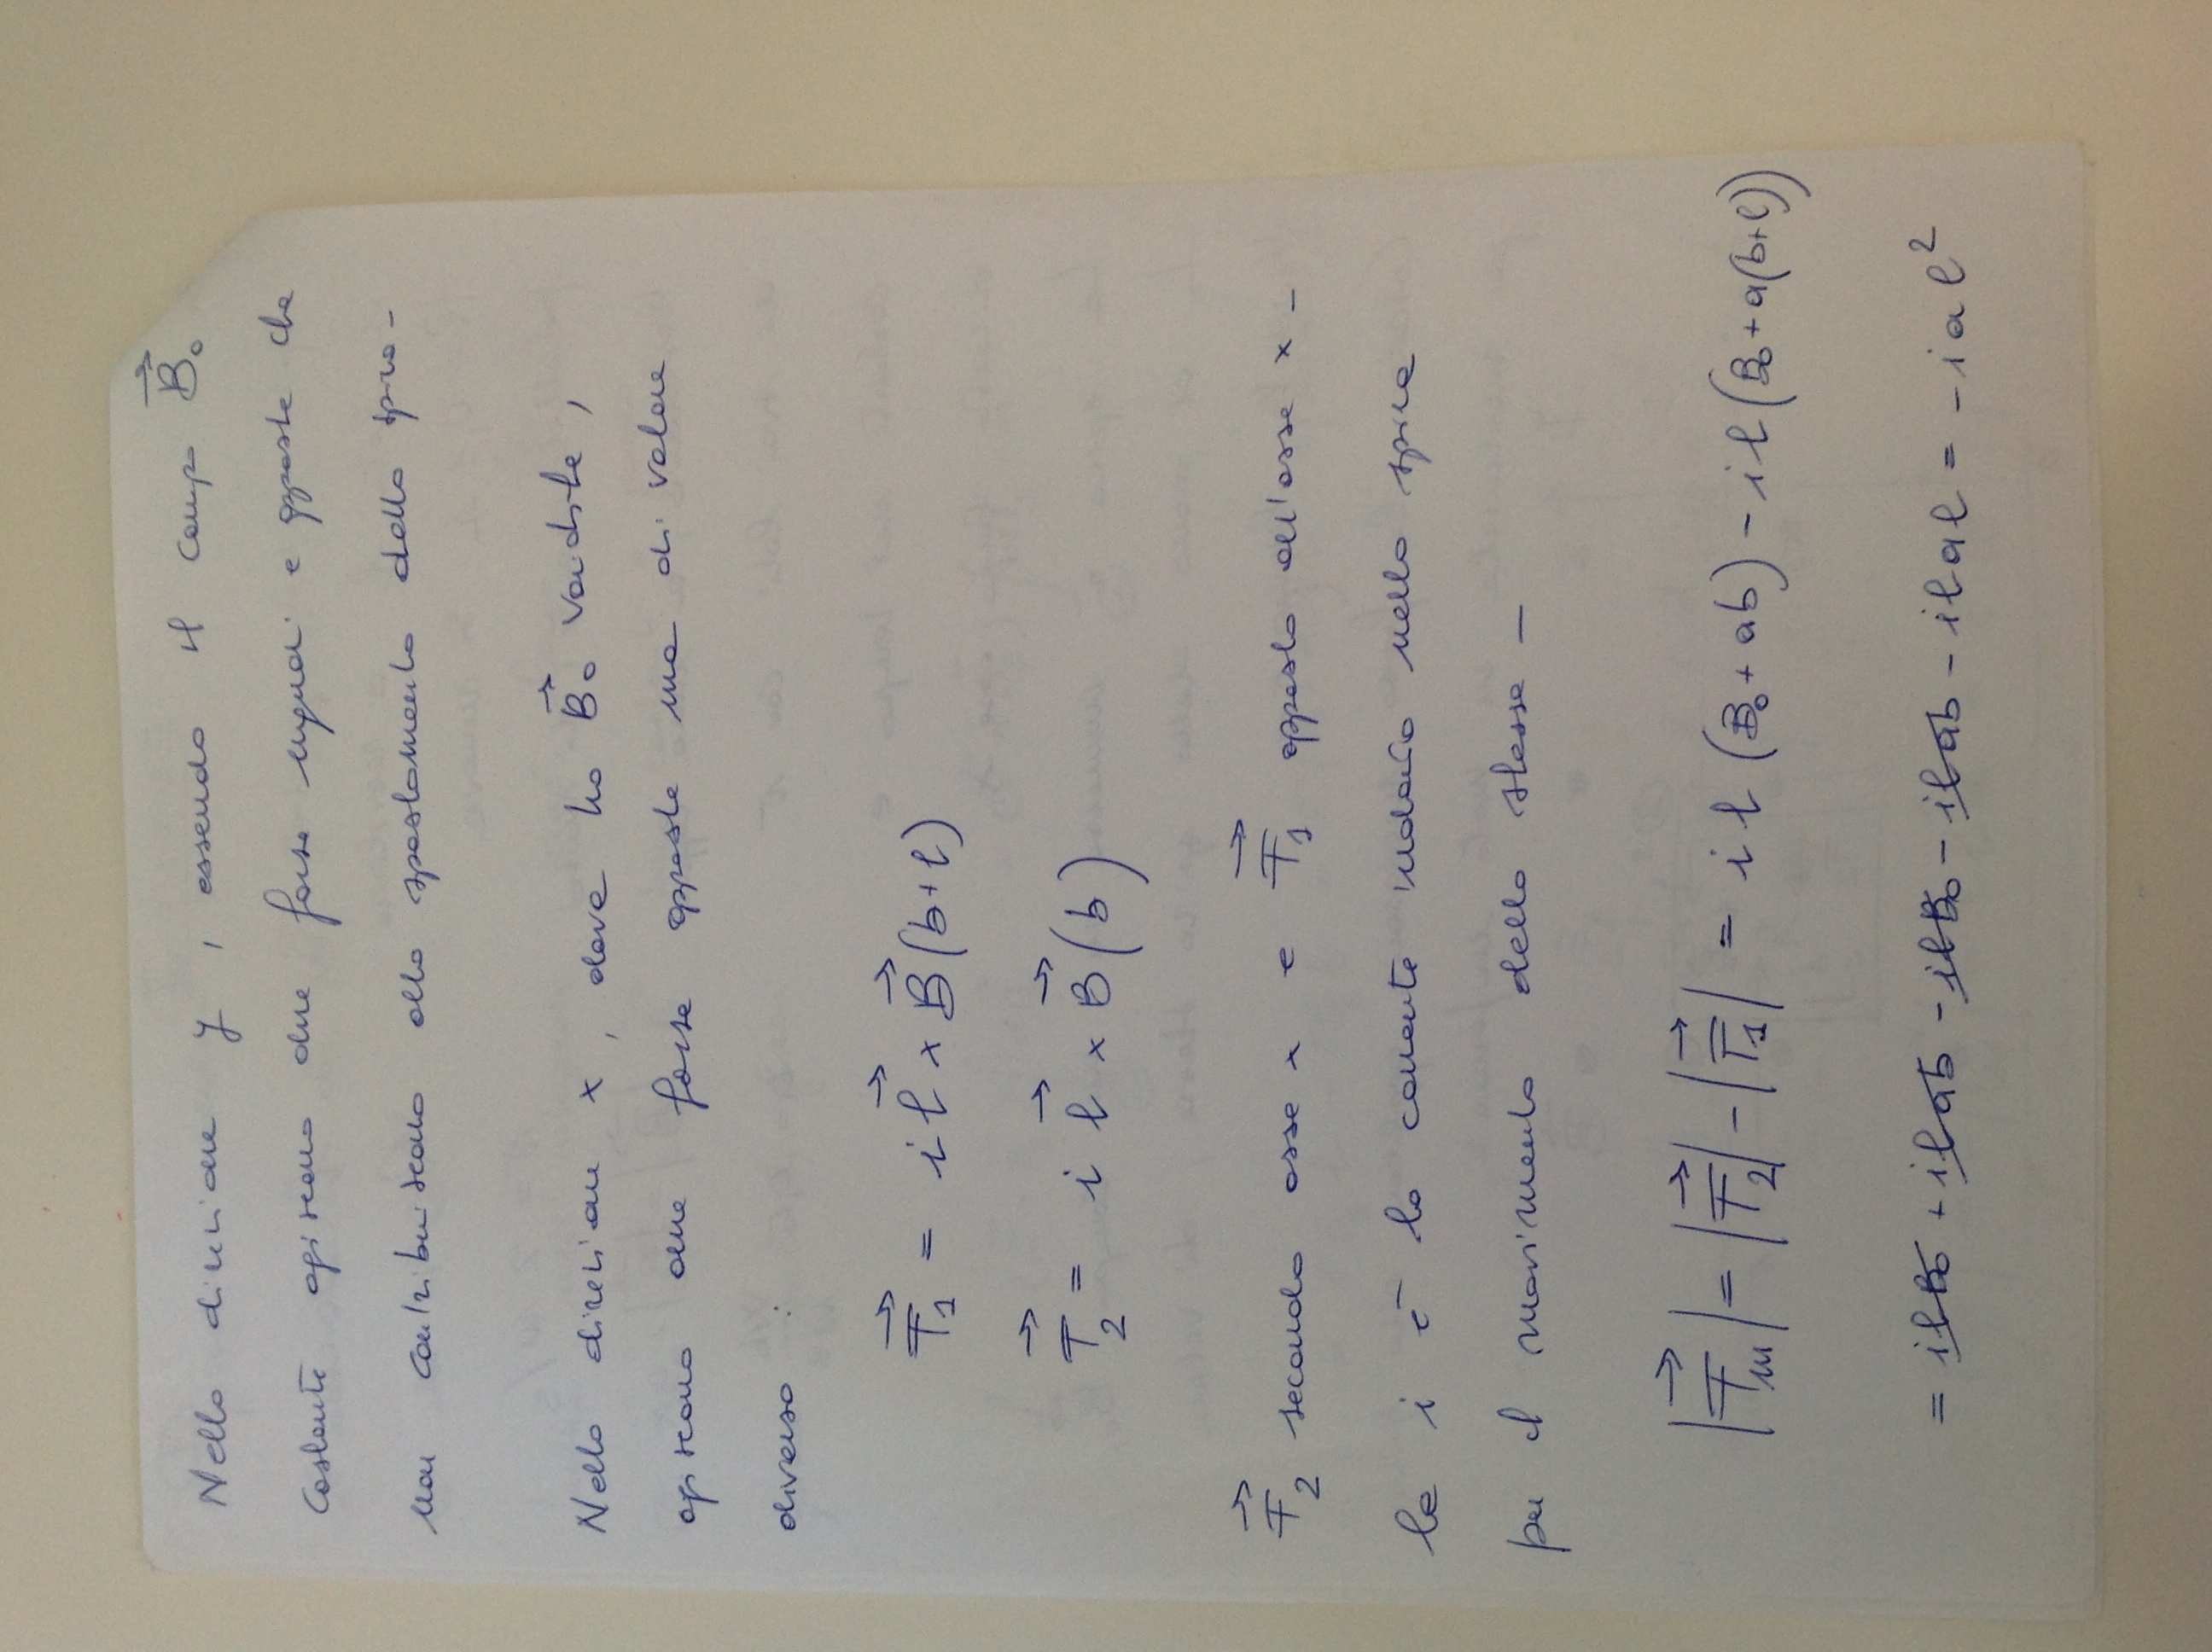 Nella direzione y , essendo il campo B⃗₀
costante agiscono due forze uguali e opposte che
non contribuiscono allo spostamento della spira -
Nella direzione x , dove ho B⃗₀ variabile ,
agiscono due forze opposte ma di valore
diverso :
F⃗₁ = i l⃗ × B⃗(b+l)
F⃗₂ = i l⃗ × B⃗(b)
F⃗₂ secondo asse x e F⃗₁ opposta all'asse x -
La i è la corrente indotta nella spira
per il movimento della stessa -
|F⃗m| = |F⃗₂| - |F⃗₁| = i l (B₀ + ab) - i l (B₀ + a(b+l))
= ilB₀ + ilab - ilB₀ - ilab - ilal = - i a l²